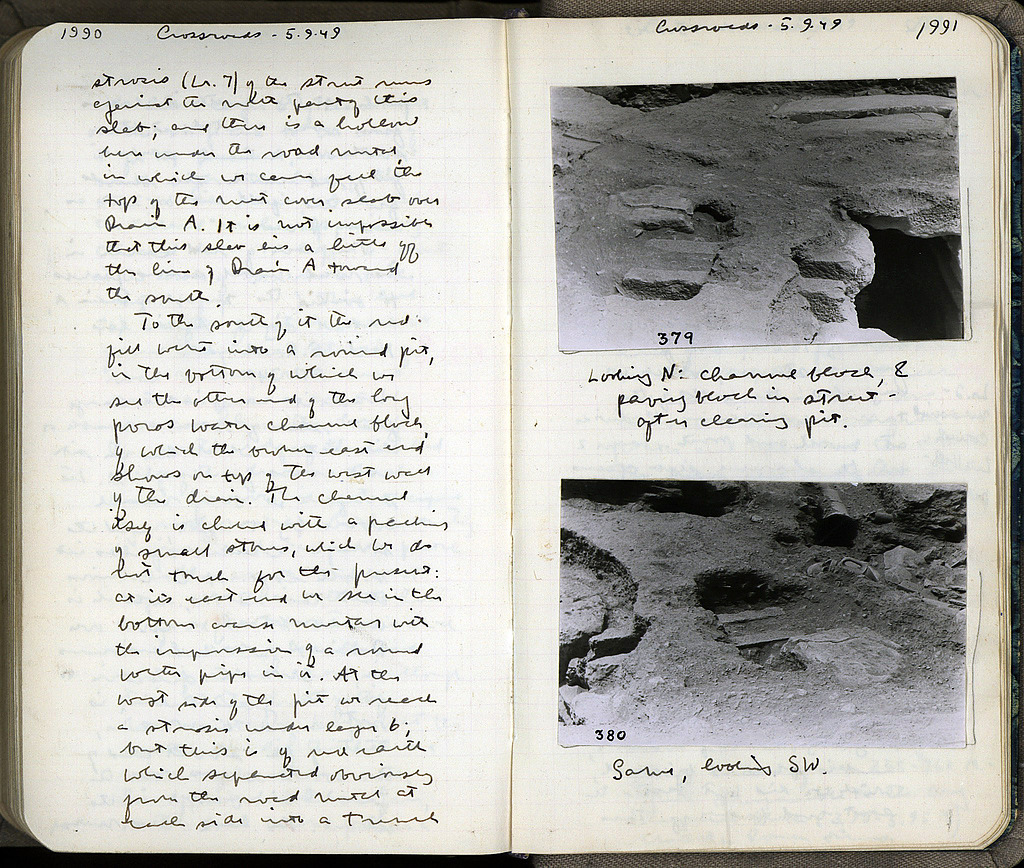 1990 Crossroads - 5.9.49
strosis (Lr. 7) of the street runs
against the part of this
slab; and there is a hollow
here under the road metal,
in which we can feel the
top of the next cover slab over
Drain A. It is not impossible
that this slab lies a little off
the line of Drain A toward
the south.
To the south of it the red
fill went into a round pit,
in the bottom of which we
see the other end of the long
poros water channel block,
of which the broken east end
shows on top of the west wall
of the drain. The channel
itself is closed with a packing
of small stones, which we do
not touch for the present:
at its east end we see in the
bottom coarse mortar with
the impression of a round
water pipe in it. At the
west side of the pit we reach
a strosis under layer 6;
but this is of red earth
which separated obviously
from the road metal at
each side into a trench
Crossroads - 5.9.49 1991
379
Looking N: channel block, &
paving block in street -
after clearing pit.
380
Same, looking SW.